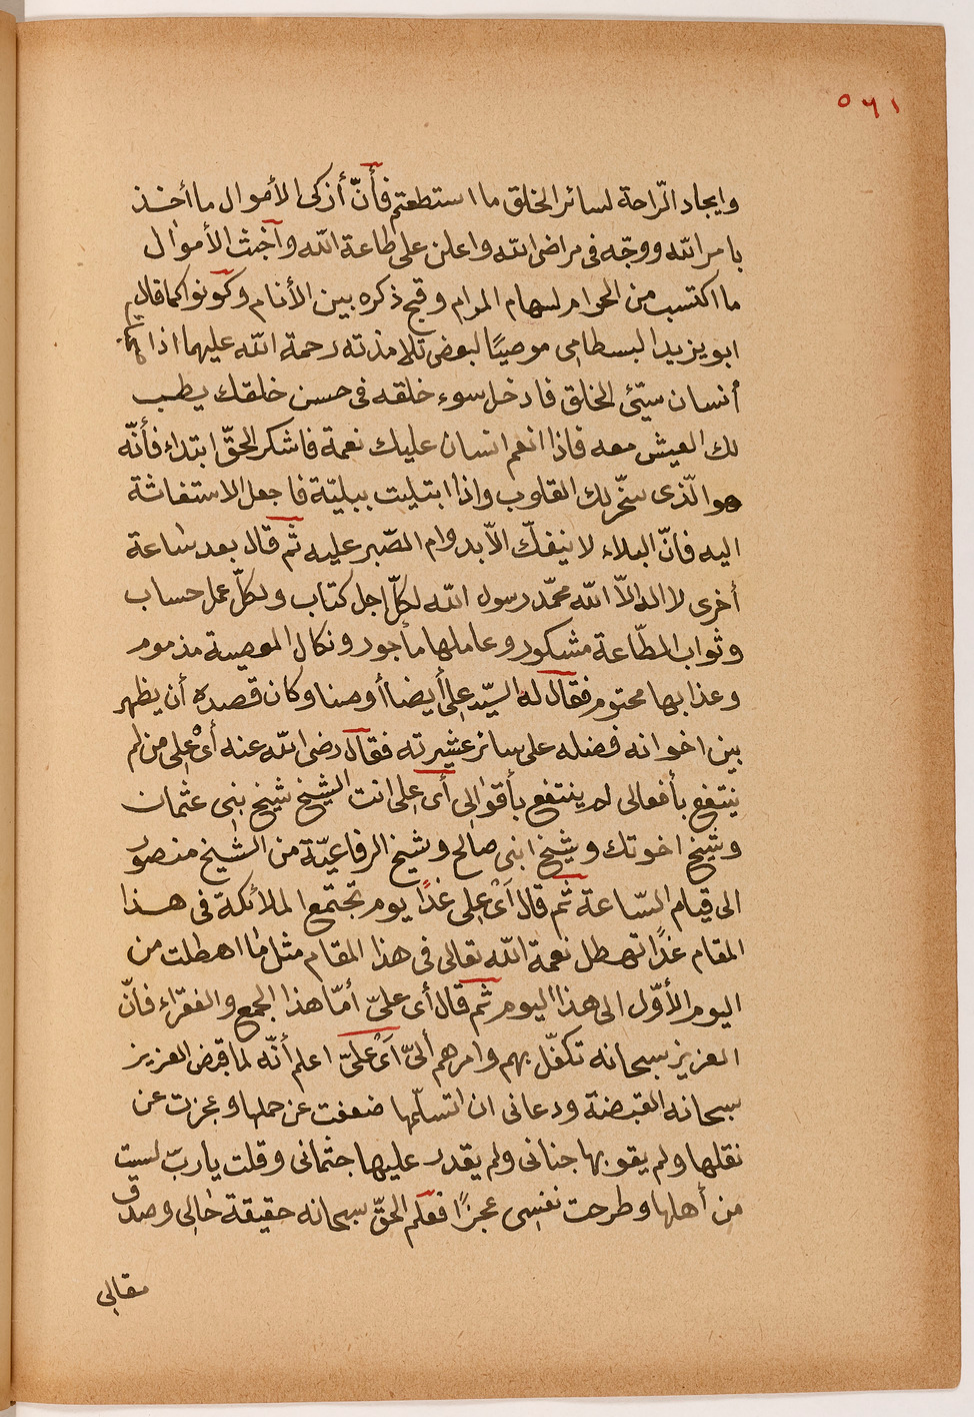 ٥٦١
وايجاد الرّاحة لسائر الخلق ما استطعتم فأنّ أزكى الأموال ما أخذ
بامر الله ووجّه فى مراضى الله واعلن على طاعة الله وآخبث الأموال
ما اكتسب من الحرام لسهام المرام وقبح ذكره بين الأنام وكونوا كما قال
ابو يزيد البسطامى موصيًا لبعض تلامذته رحمة الله عليهما اذا
أنسان سيّئ الخلق فادخل سوء خلقه فى حسن خلقك يطب
لك العيش معه فاذا انعم انسان عليك نعمة فاشكر الحقّ ابتداء فأنّه
هو الّذى سخّر لك القلوب واذا ابتليت ببليّة فاجعل الاستغاثة
اليه فانّ البلاء لا ينفكّ الاّ بدوام الصّبر عليه ثم قال بعد ساعة
أخرى لا اله الاّ الله محمّد رسول الله لكلّ اجل كتاب ولكلّ عمل حساب
وثواب الطّاعة مشكور وعاملها مأجور ونكال المعصية مذموم
وعذابها محتوم فقال له السيّد على أيضا أوصنا وكان قصده أن يظهر
بين اخوانه فضله على سائر عشيرته فقال رضى الله عنه أىْ على من لم
ينتفع بأفعالى لم ينتفع بأقوالى أى على انت الشيخ شيخ بنى عثمان
وشيخ اخوتك وشيخ ابنى صالح وشيخ الرفاعيّة من الشيخ منصور
الى قيام السّاعة ثم قال أىْ على غدًا يوم تجتمع الملائكة فى هذا
المقام غدًا تهطل نعمة الله تعالى فى هذا المقام مثل ما اهطلت من
اليوم الأوّل الى هذا اليوم ثم قال أى علىّ أمّا هذا الجمع والفقراء فأنّ
العزيز سبحانه تكفّل بهم وامرهم ألىّ أىْ علىّ اعلم أنّه لما قبض العزيز
سبحانه القبضة ودعانى ان اتسلّمها ضعفت عن حملها وعجزت عن
نقلها ولم يقو بها جنانى ولم يقدر عليها جثمانى وقلت يا ربّ لست
من أهلها وطرحت نفسى عجزًا فعلم الحقّ سبحانه حقيقة حالى وصدق
مقالى